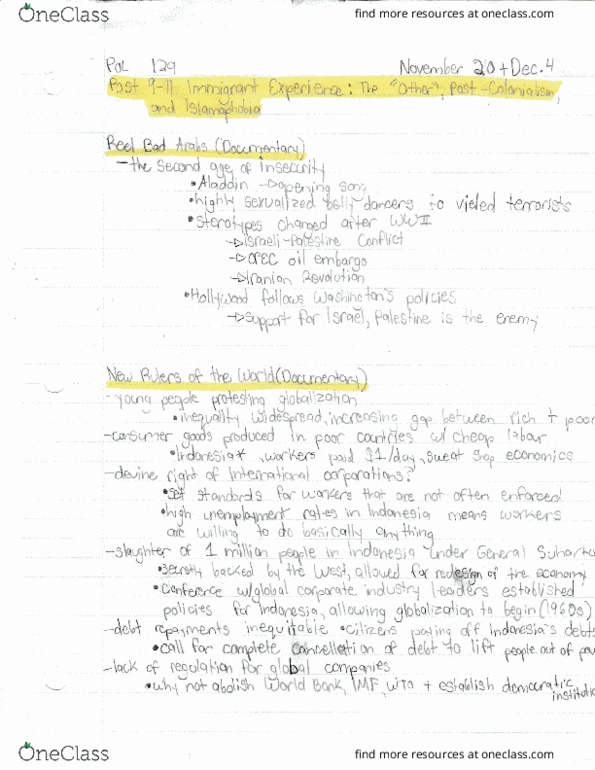 OneClass
find more resources at oneclass.com
POL 129
November 20 + Dec. 4
Post 9-11 Immigrant Experience: The "Other", Post-Colonialism,
and Islamophobia
Reel Bad Arabs (Documentary)
- the second age of insecurity
• Aladdin → opening song
• highly sexualized belly dancers to vieled terrorists
• sterotypes changed after WWII
→ Israeli-Palestine Conflict
→ OPEC oil embargo
→ Iranian Revolution
• Hollywood follows Washington's policies
→ support for Israel, Palestine is the enemy
New Rulers of the World (Documentary)
- young people protesting globalization
• inequality widespread, increasing gap between rich + poor
- consumer goods produced in poor countries w/ cheap labour
• Indonesia* workers paid $1/day, sweat shop economics
- devine right of international corporations?
• set standards for workers that are not often enforced
• high unemployment rates in Indonesia means workers
are willing to do basically anything
- slaughter of 1 million people in Indonesia under General Suharto
• secretly backed by the West, allowed for redesign of the economy
• conference w/ global corporate industry leaders established
policies for Indonesia, allowing globalization to begin (1960s)
- debt repayments inequitable • citizens paying off Indonesia's debts
• call for complete cancellation of debt to lift people out of pov
- lack of regulation for global companies
• why not abolish World Bank, IMF, WTO + establish democratic
institutio
OneClass
find more resources at oneclass.com